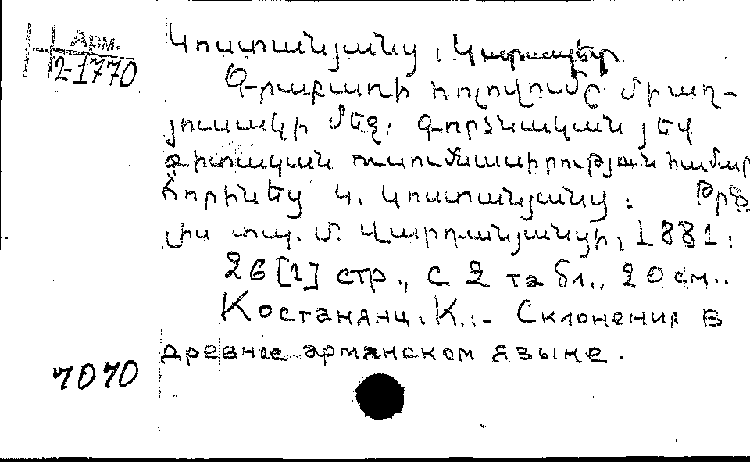 Арм.
2-1770
Կոստանյանց, Կարապետ
Գրաբառի հոլովումը միաղ-
յուսակի մեջ: Գործնական յեվ
գիտական ուսումնասիրության համար
հորինեց Կ. Կոստանյանց: Թիֆ
լիս տպ. Մ. Վարդանյանցի, 1881:
26 [1] стр., с 2 табл., 20 см..
Костанянц. К.:- Склонения в
древнее армянском языке.
7070